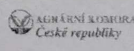 AGRÁRNÍ KOMORA
České republiky